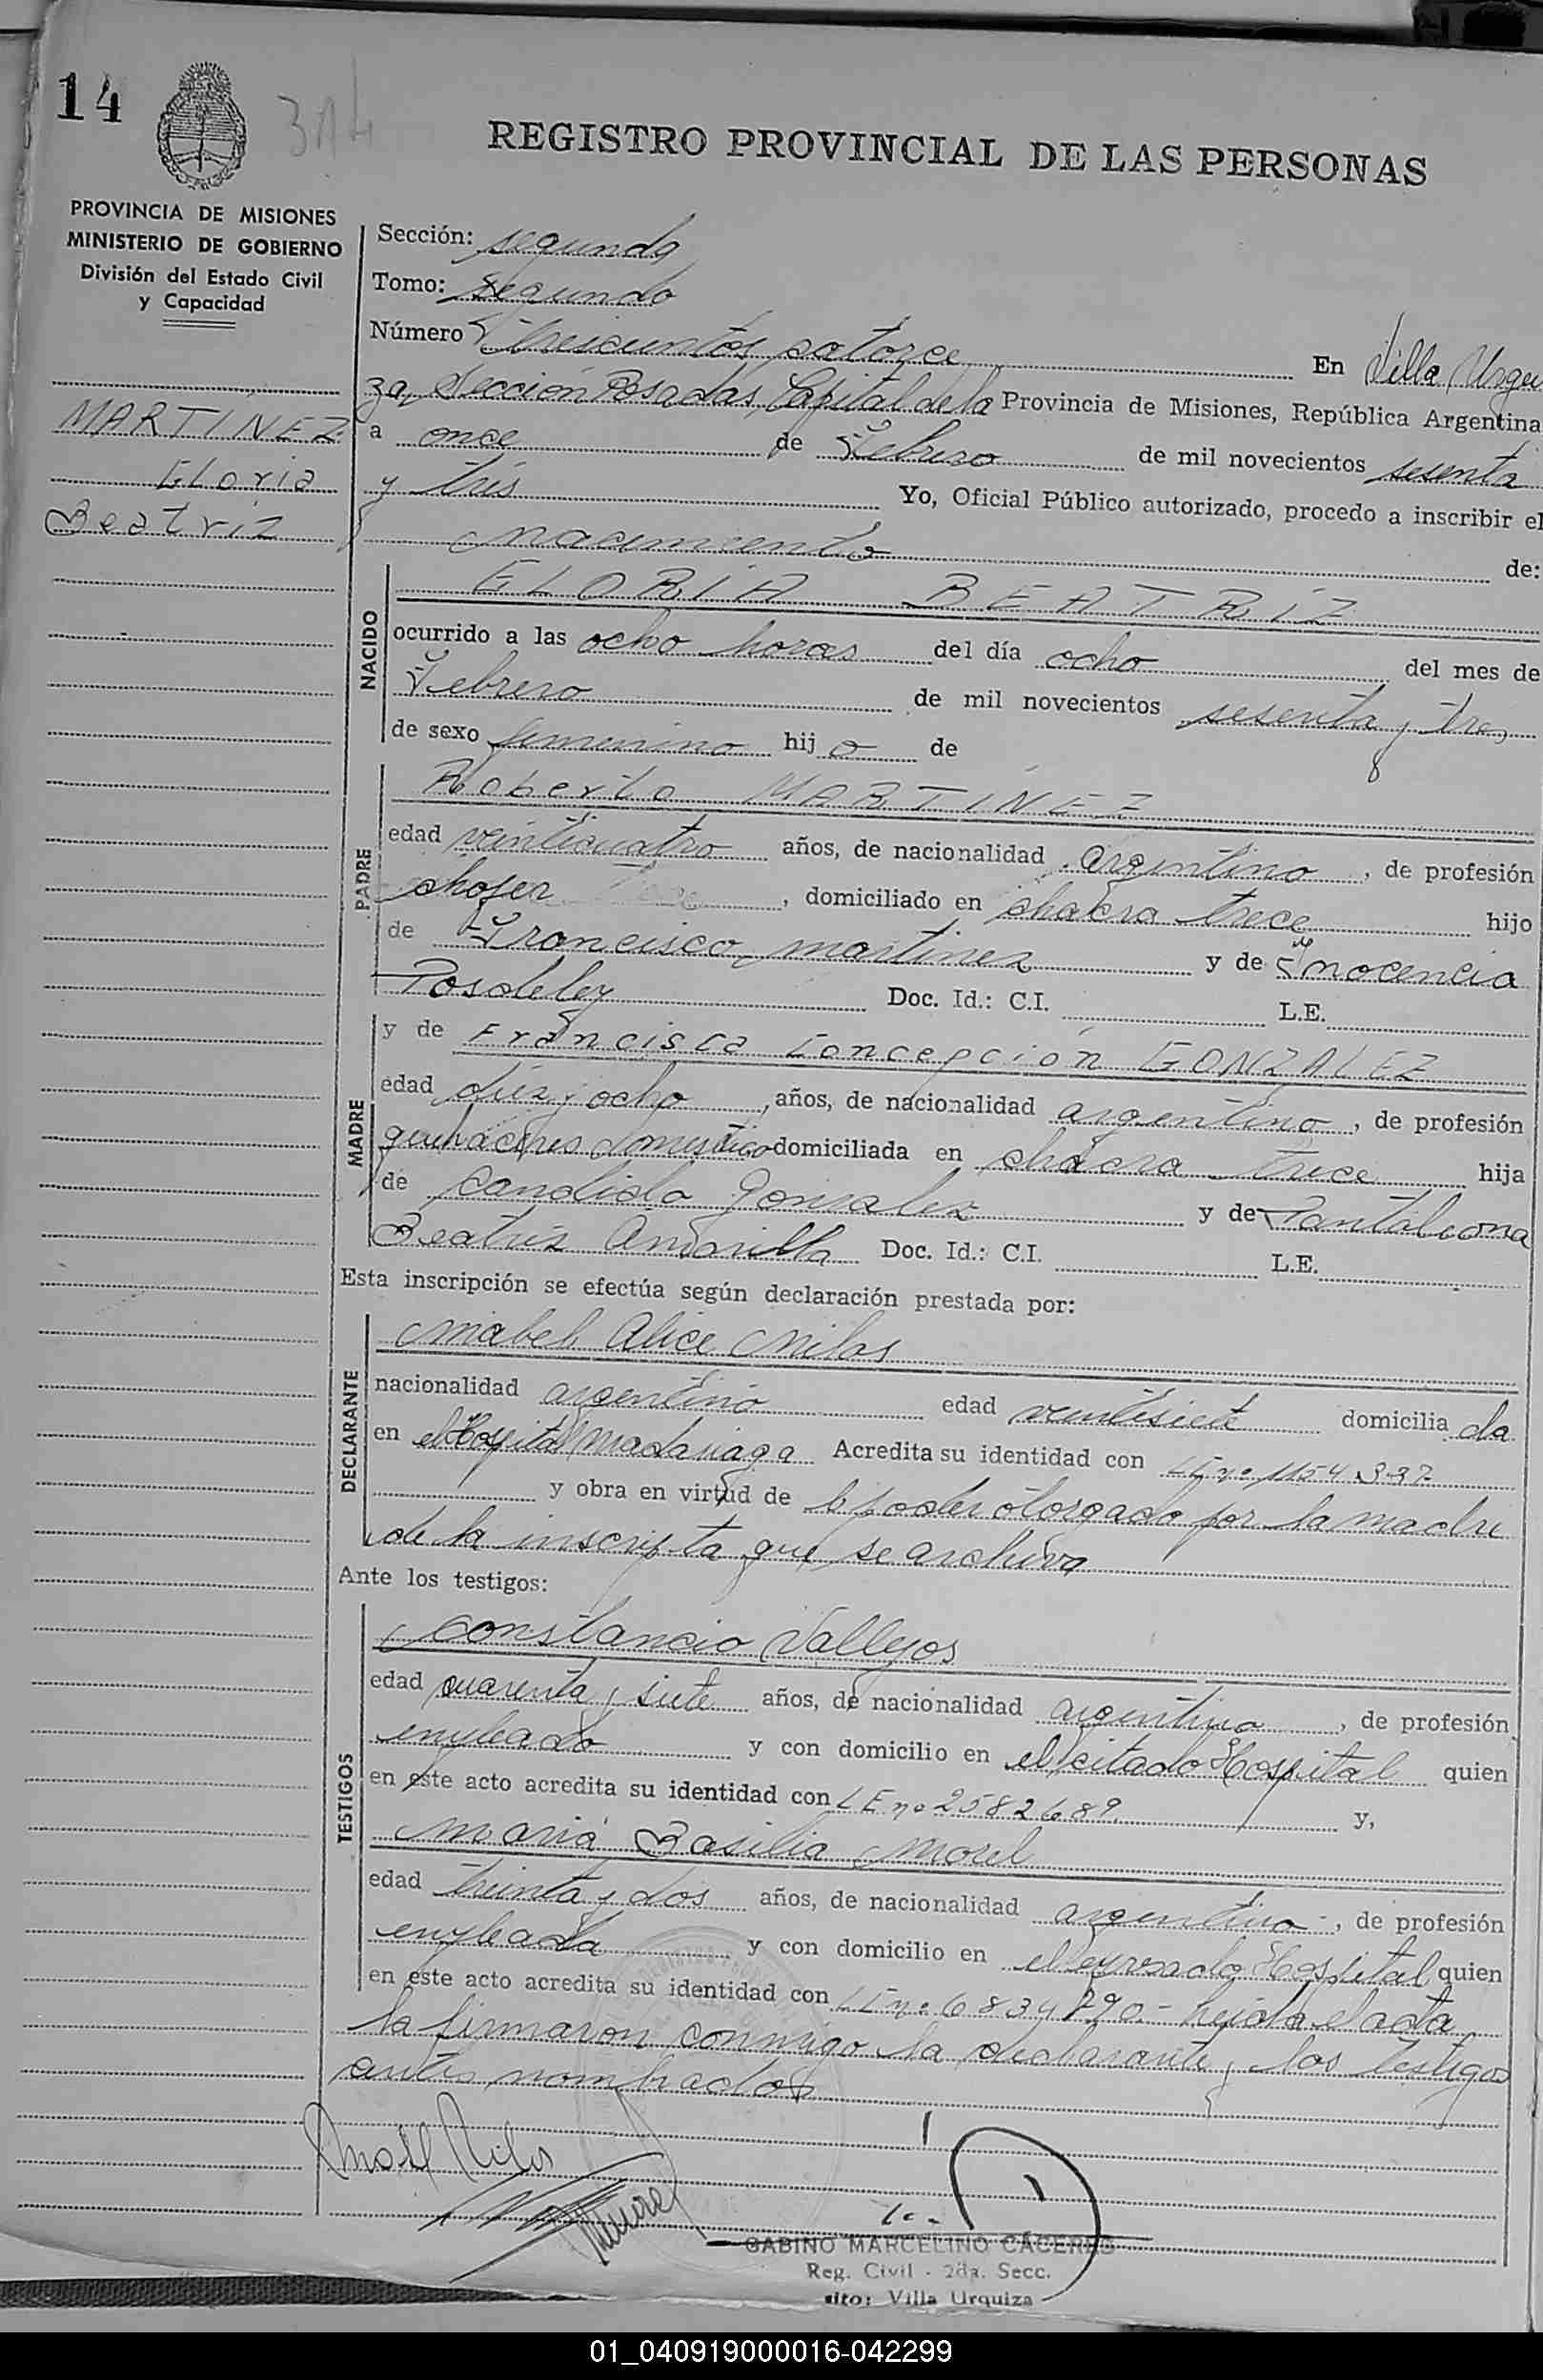 14
314
REGISTRO PROVINCIAL DE LAS PERSONAS
PROVINCIA DE MISIONES
MINISTERIO DE GOBIERNO
División del Estado Civil
y Capacidad
MARTINEZ
Gloria
Beatriz
Sección: segunda
Tomo: segundo
Número trescientos catorce En Villa Urqui
za, Sección Posadas, Capital de la Provincia de Misiones, República Argentina
a once de Febrero de mil novecientos sesenta
y tres Yo, Oficial Público autorizado, procedo a inscribir el
nacimiento de:
NACIDO
GLORIA BEATRIZ
ocurrido a las ocho horas del día ocho del mes de
Febrero de mil novecientos sesenta y tres
de sexo femenino hij a de
PADRE
Roberto MARTINEZ
edad veinticuatro años, de nacionalidad argentino, de profesión
chofer, domiciliado en chacra trece hijo
de Francisco martinez y de Inocencia
Posdeley Doc. Id.: C.I. L.E.
MADRE
y de Francisca Concepción GONZALEZ
edad diez y ocho, años, de nacionalidad argentina, de profesión
quehaceres domestico domiciliada en chacra trece hija
de Candido Gonzalez y de Pantaleona
Beatriz Amarilla Doc. Id.: C.I. L.E.
Esta inscripción se efectúa según declaración prestada por:
DECLARANTE
Mabel Alice Milos
nacionalidad argentina edad veintisiete domicilia da
en el Hospital Madariaga Acredita su identidad con LE nº 1154.337
y obra en virtud de le poder otorgado por la madre
de la inscripta que se archiva
Ante los testigos:
TESTIGOS
Constancio Vallejos
edad cuarenta y siete años, de nacionalidad argentino, de profesión
empleado y con domicilio en el citado Hospital quien
en este acto acredita su identidad con LE nº 2582689 y,
Maria Basilia Morel
edad treinta y dos años, de nacionalidad argentina, de profesión
empleada y con domicilio en el expresado Hospital quien
en este acto acredita su identidad con LE nº 6834790.- leida el acta
la firmaron conmigo la declarante y los testigos
antes nombrados
GABINO MARCELINO CÁCERES
Reg. Civil - 2da. Secc.
Villa Urquiza
01_040919000016-042299